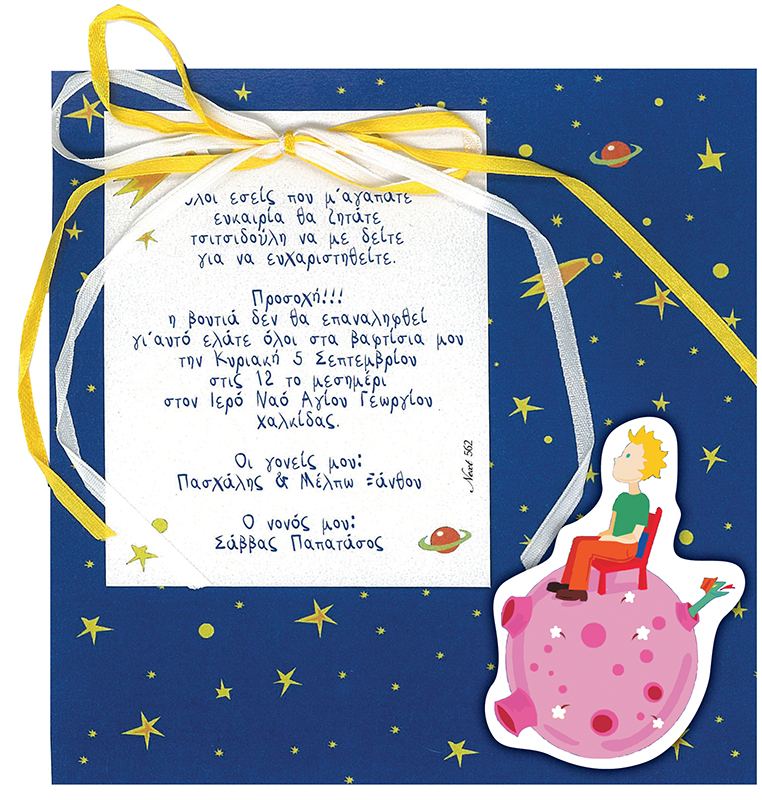 όλοι εσείς που μ΄αγαπάτε
ευκαιρία θα ζητάτε
τσιτσιδούλη να με δείτε
για να ευχαριστηθείτε.
Προσοχή!!!
η βουτιά δεν θα επαναληφθεί
γι΄αυτό ελάτε όλοι στα βαφτίσια μου
την Κυριακή 5 Σεπτεμβρίου
στις 12 το μεσημέρι
στον Ιερό Ναό Αγίου Γεωργίου
χαλκίδας.
Οι γονείς μου:
Πασχάλης & Μέλπω Ξάνθου
Ο νονός μου:
Σάββας Παπατάσος
Next 562